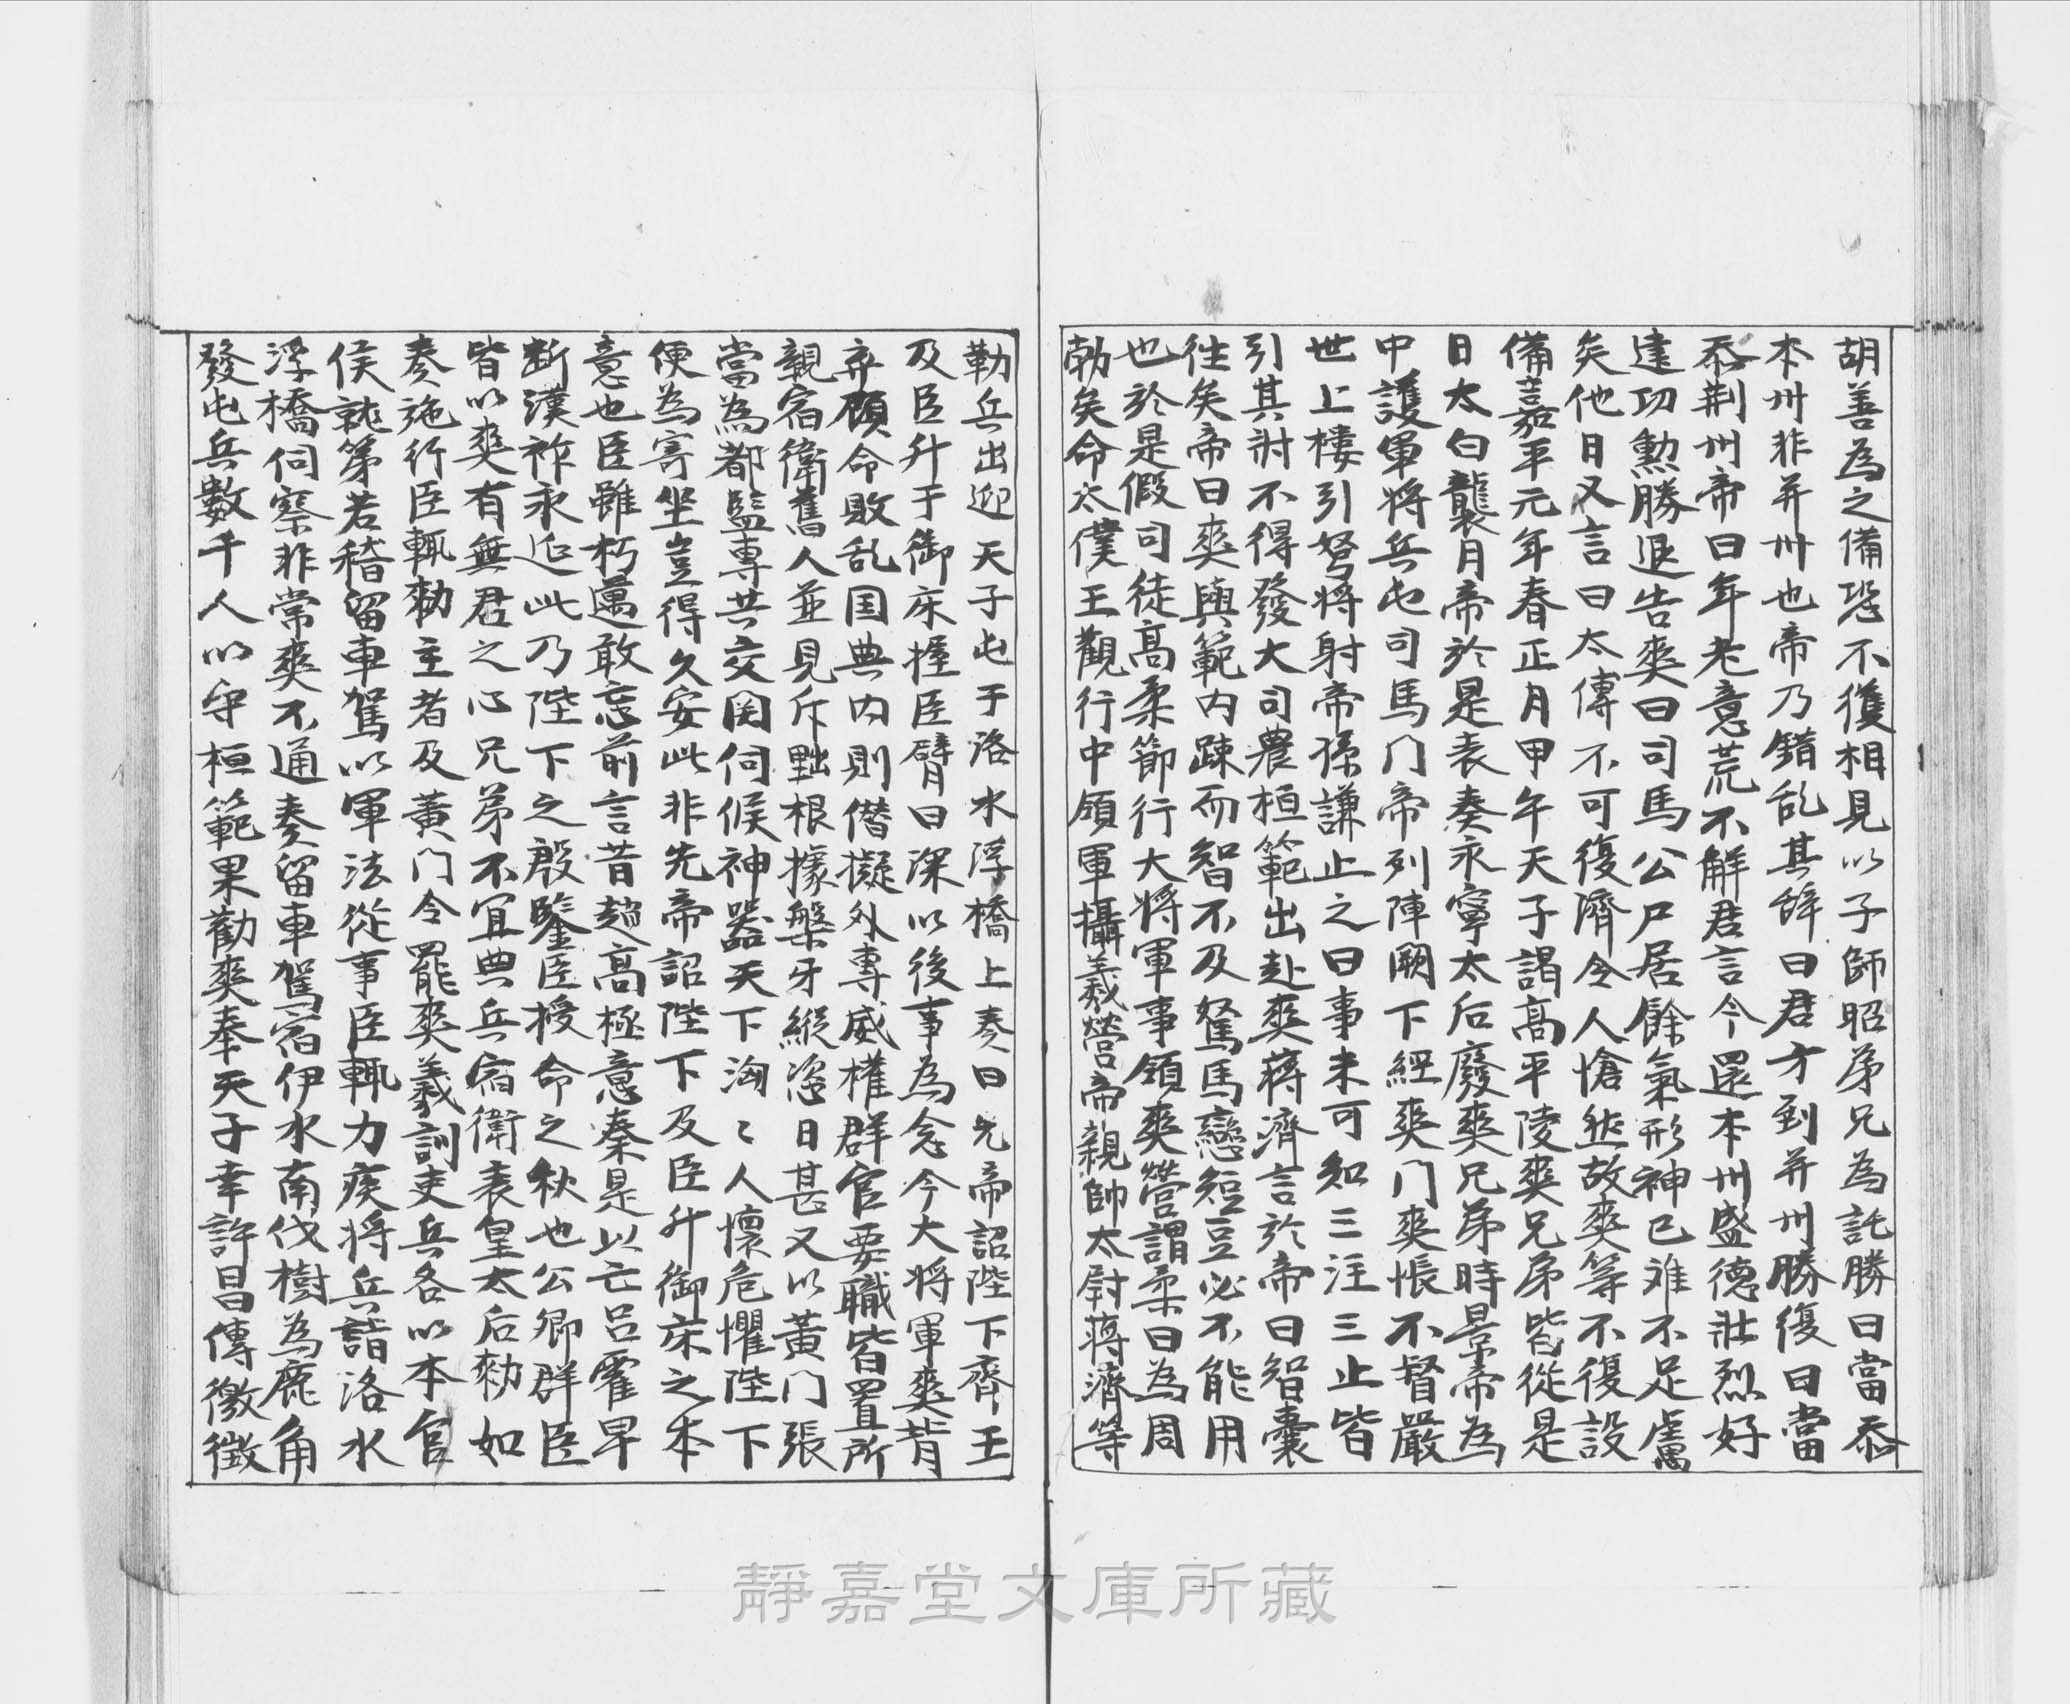 胡善為之備恐不復相見以子師昭弟兄為託勝曰當忝
本州非并州也帝乃錯乱其辭曰君方到并州勝復曰當
忝荆州帝曰年老意荒不解君言今還本州盛德壯烈好
建功勲勝退告爽曰司馬公尸居餘氣形神已难不足慮
矣他日又言曰太傅不可復濟令人愴然故爽等不復設
備嘉平元年春正月甲午天子謁髙平陵爽兄弟皆從是
日太白襲月帝於是表奏永寧太后廢爽兄弟時景帝為
中護軍将兵屯司馬门帝列陣闕下經爽门爽悵不督嚴
世上楼引弩将射帝孫謙止之曰事未可知三注三止皆
引其肘不得發大司農桓範出赴爽蒋濟言於帝曰智囊
往矣帝曰爽與範内踈而智不及駑馬戀短豆必不能用
也於是假司徒髙柔節行大将軍事領爽營謂柔曰為周
勃矣命太僕王觀行中領軍攝羲營帝親帥太尉蒋濟等
勒兵出迎天子屯于洛水浮橋上奏曰先帝詔陛下齊王
及臣升于御床握臣臂曰深以後事為念今大将軍爽背
弃顧命敗乱国典内則僣擬外專威權群官要職皆置所
親宿衛舊人並見斥黜根據槃牙縱恣日甚又以黃门張
當為都監專共交関伺候神器天下洶〻人懷危懼陛下
便為寄坐豈得久安此非先帝詔陛下及臣升御床之本
意也臣雖朽邁敢忘前言昔趙髙極意秦是以亡吕霍早
断漢祚永延此乃陛下之殷鑒臣授命之秋也公卿群臣
皆以爽有無君之心兄弟不宜典兵宿衛表皇太后勑如
奏施行臣輒勑主者及黃门令罷爽羲訓吏兵各以本官
侯就第若稽留車駕以軍法從事臣輒力疾将兵詣洛水
浮橋伺察非常爽不通奏留車駕宿伊水南伐樹為鹿角
發屯兵數千人以守桓範果勸爽奉天子幸許昌傳檄徵
靜嘉堂文庫所藏